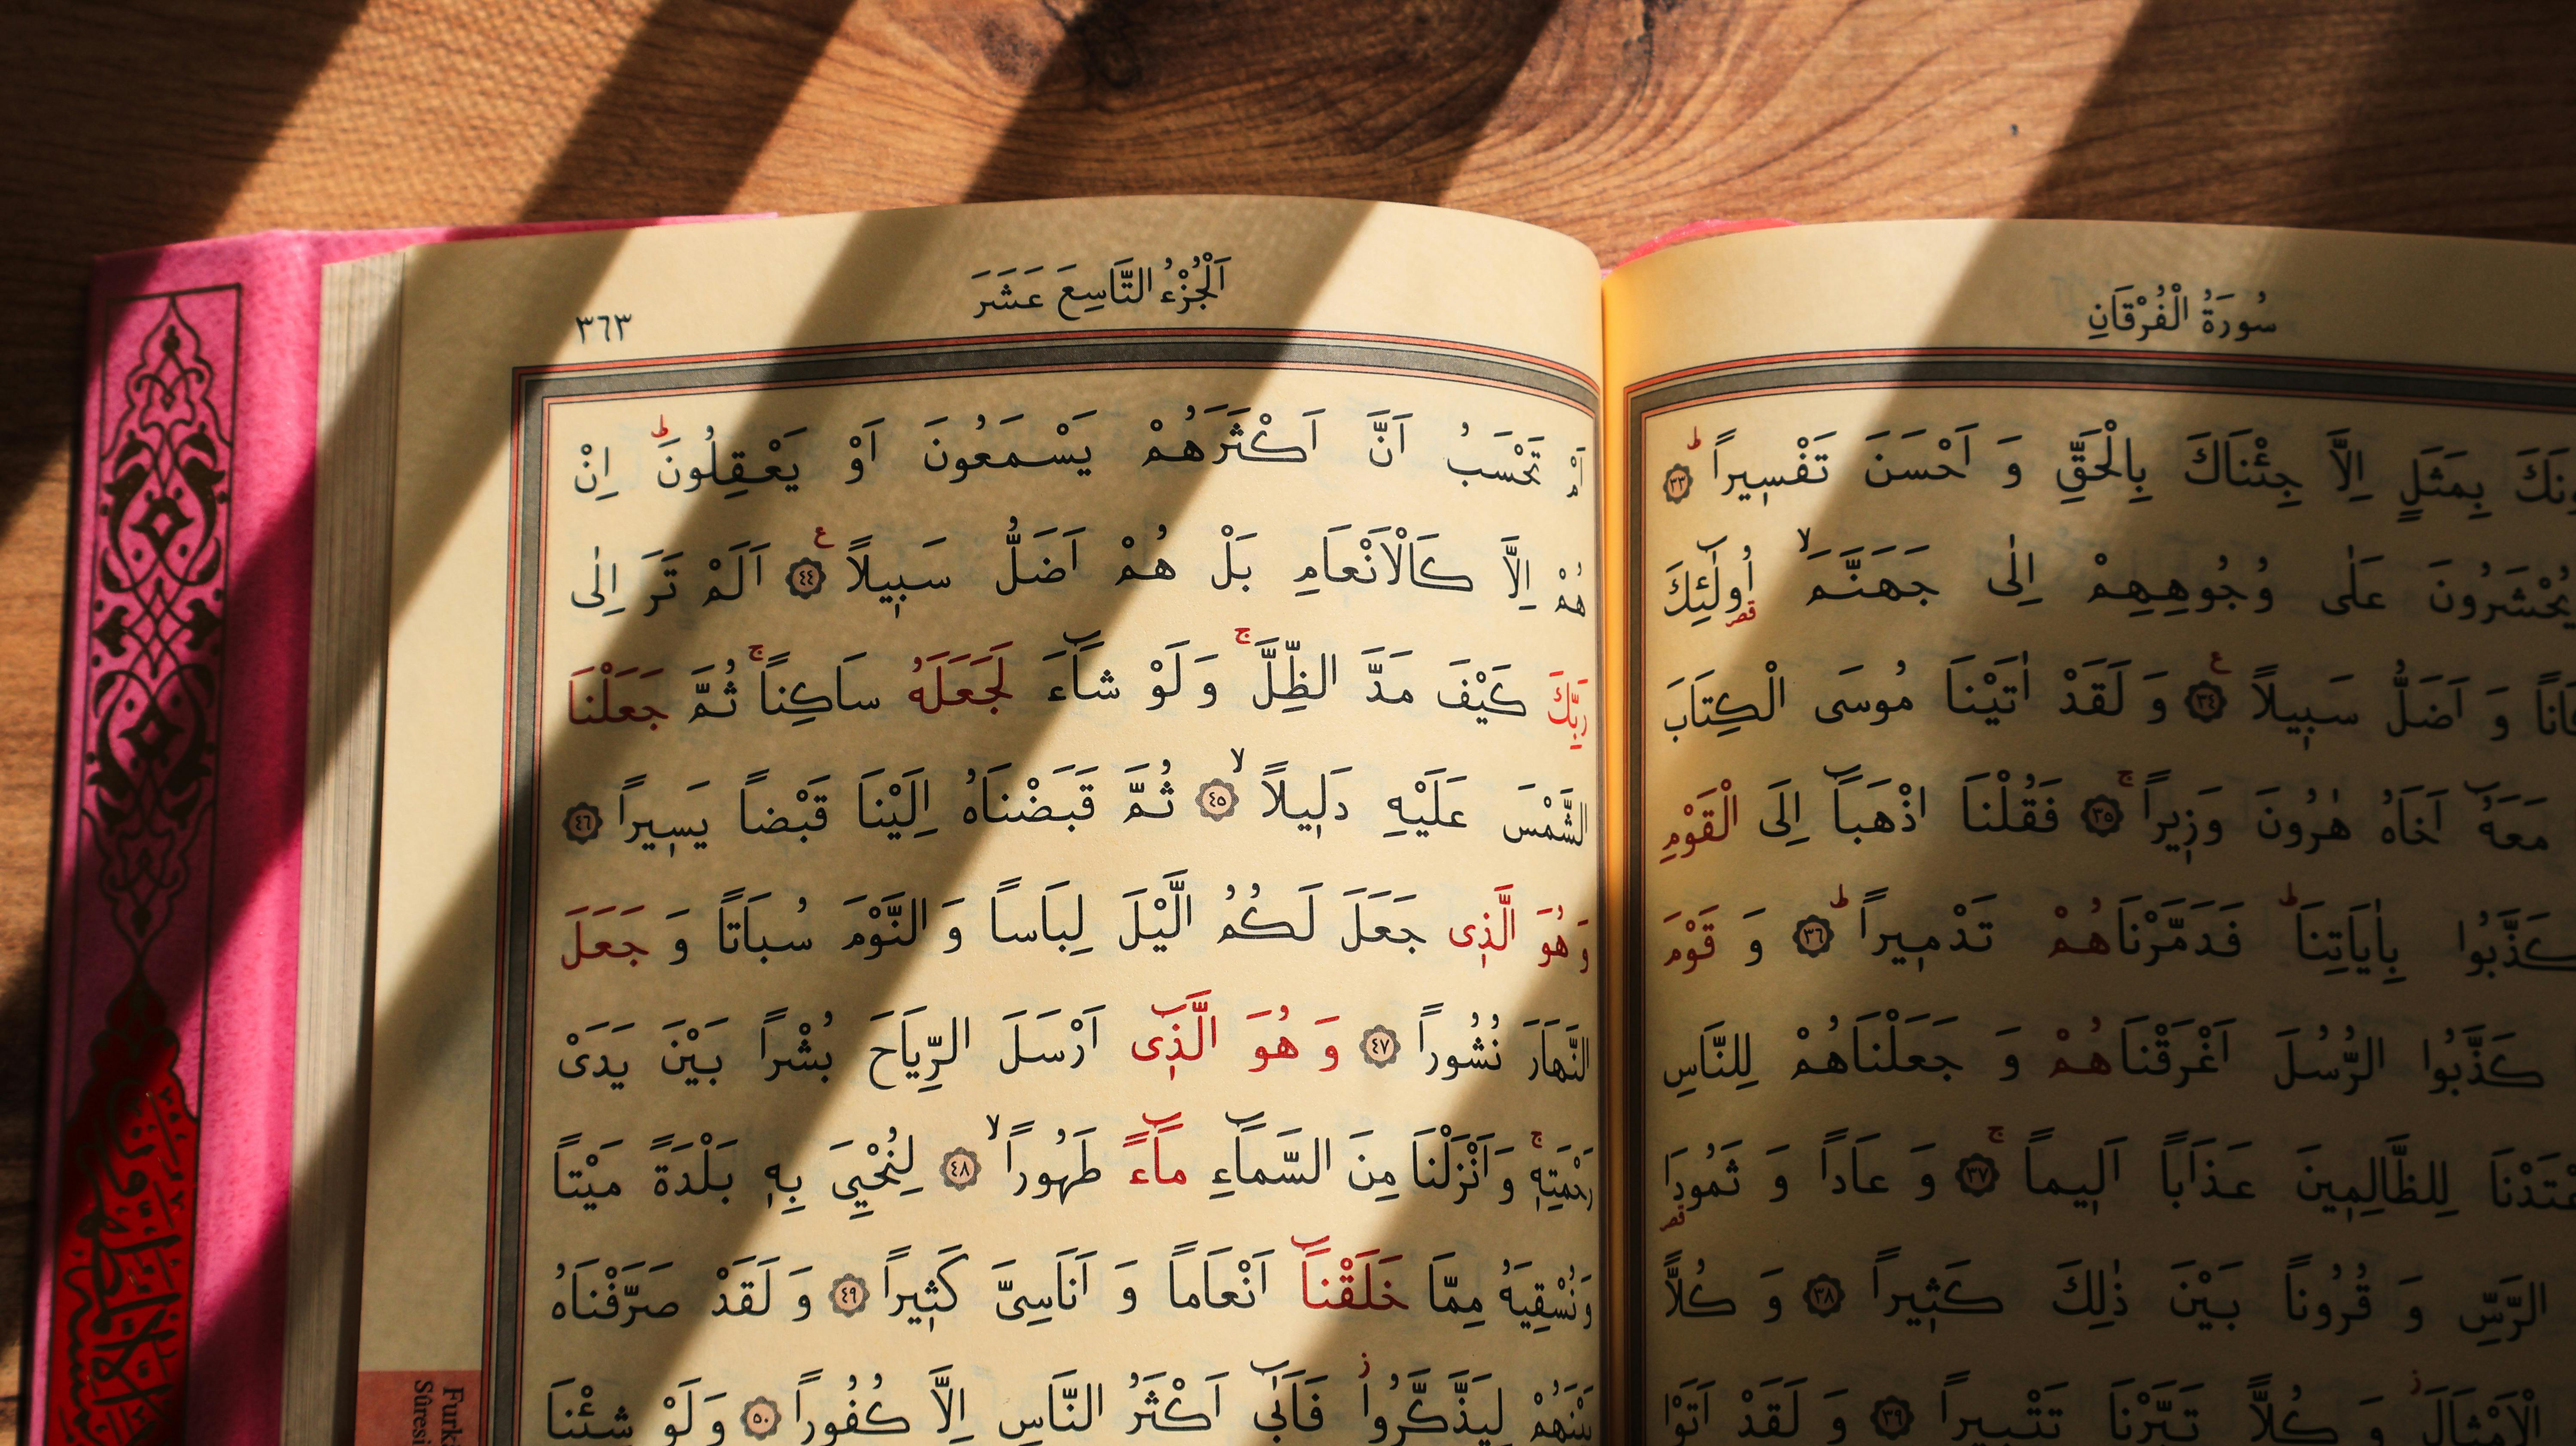 سُورَةُ الْفُرْقَانِ
بِمَثَلٍ اِلَّا جِئْنَاكَ بِالْحَقِّ وَ اَحْسَنَ تَفْسٖيراًۜ ﴿٣٣﴾
يُحْشَرُونَ عَلٰى وُجُوهِهِمْ اِلٰى جَهَنَّمَۙ اُولٰٓئِكَ
وَ اَضَلُّ سَبٖيلاً ﴿٣٤﴾ وَ لَقَدْ اٰتَيْنَا مُوسَى الْكِتَابَ
مَعَهُٓ اَخَاهُ هٰرُونَ وَزٖيراًۚ ﴿٣٥﴾ فَقُلْنَا اذْهَبَٓا اِلَى الْقَوْمِ
كَذَّبُوا بِاٰيَاتِنَاۜ فَدَمَّرْنَاهُمْ تَدْمٖيراًۜ ﴿٣٦﴾ وَ قَوْمَ
كَذَّبُوا الرُّسُلَ اَغْرَقْنَاهُمْ وَ جَعَلْنَاهُمْ لِلنَّاسِ
لِلظَّالِمٖينَ عَذَاباً اَلٖيماًۚ ﴿٣٧﴾ وَ عَاداً وَ ثَمُودَا
الرَّسِّ وَ قُرُوناً بَيْنَ ذٰلِكَ كَثٖيراً ﴿٣٨﴾ وَ كُلاًّ
الْاَمْثَالَ وَ كُلاًّ تَبَّرْنَا تَتْبٖيراً ﴿٣٩﴾ وَ لَقَدْ اَتَوْا
اَلْجُزْءُ التَّاسِعَ عَشَرَ
٣٦٣
اَمْ تَحْسَبُ اَنَّ اَكْثَرَهُمْ يَسْمَعُونَ اَوْ يَعْقِلُونَۜ اِنْ
هُمْ اِلَّا كَالْاَنْعَامِ بَلْ هُمْ اَضَلُّ سَبٖيلاً ﴿٤٤﴾ اَلَمْ تَرَ اِلٰى
رَبِّكَ كَيْفَ مَدَّ الظِّلَّۚ وَ لَوْ شَٓاءَ لَجَعَلَهُ سَاكِناًۚ ثُمَّ جَعَلْنَا
الشَّمْسَ عَلَيْهِ دَلٖيلاًۙ ﴿٤٥﴾ ثُمَّ قَبَضْنَاهُ اِلَيْنَا قَبْضاً يَسٖيراً ﴿٤٦﴾
وَ هُوَ الَّذٖى جَعَلَ لَكُمُ الَّيْلَ لِبَاساً وَ النَّوْمَ سُبَاتاً وَ جَعَلَ
النَّهَارَ نُشُوراً ﴿٤٧﴾ وَ هُوَ الَّذٖٓى اَرْسَلَ الرِّيَاحَ بُشْراً بَيْنَ يَدَىْ
رَحْمَتِهٖۚ وَ اَنْزَلْنَا مِنَ السَّمَٓاءِ مَٓاءً طَهُوراًۙ ﴿٤٨﴾ لِنُحْيِيَ بِهٖ بَلْدَةً مَيْتاً
وَ نُسْقِيَهُ مِمَّا خَلَقْنَٓا اَنْعَاماً وَ اَنَاسِىَّ كَثٖيراً ﴿٤٩﴾ وَ لَقَدْ صَرَّفْنَاهُ
بَيْنَهُمْ لِيَذَّكَّرُواۘ فَاَبٰٓى اَكْثَرُ النَّاسِ اِلَّا كُفُوراً ﴿٥٠﴾ وَ لَوْ شِئْنَا
Sûresi